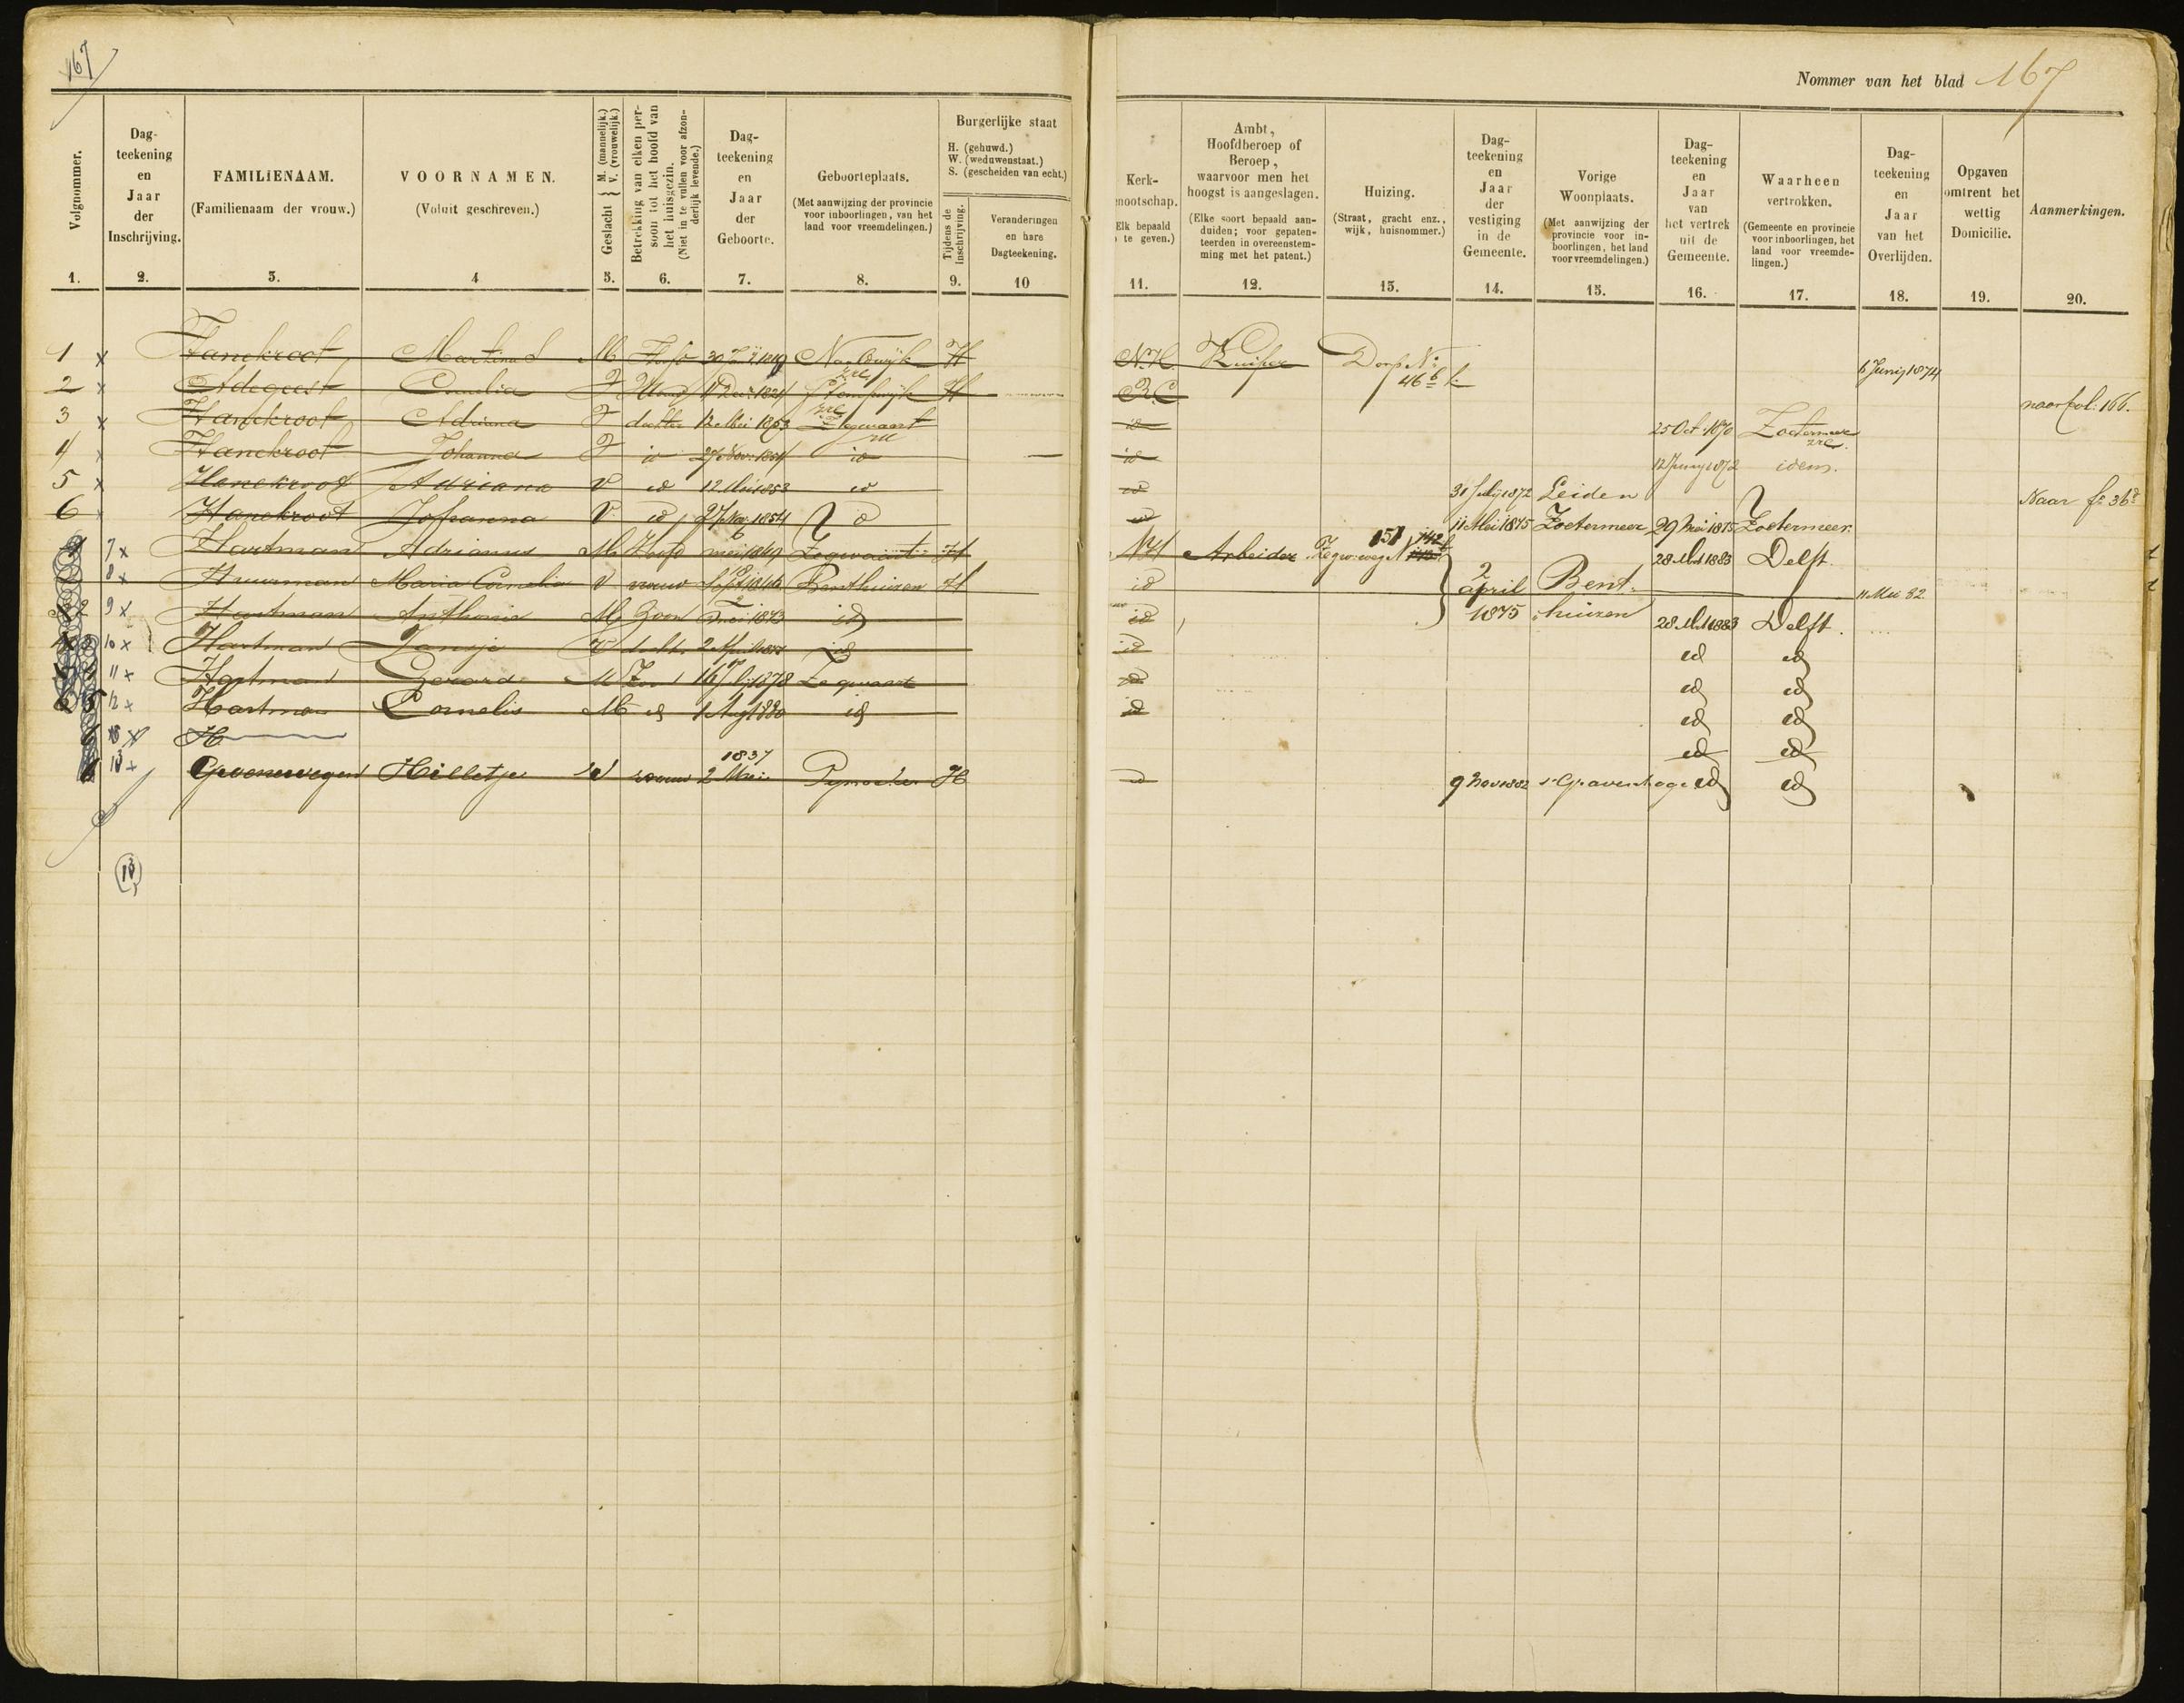 167
Nommer van het blad 167
Volgnommer.
1.
Dag-
teekening
en
Jaar
der
Inschrijving.
2.
FAMILIENAAM.
(Familienaam der vrouw.)
3.
VOORNAMEN.
(Voluit geschreven.)
4
Geslacht { M. (mannelijk.) V. (vrouwelijk.)
5.
Betrekking van elken per-
soon tot het hoofd van
het huisgezin.
(Niet in te vullen voor afzon-
derlijk levende.)
6.
Dag-
teekening
en
Jaar
der
Geboorte.
7.
Geboorteplaats.
(Met aanwijzing der provincie
voor inboorlingen, van het
land voor vreemdelingen.)
8.
Burgerlijke staat
H. (gehuwd.)
W. (weduwenstaat.)
S. (gescheiden van echt.)
Tijdens de
Inschrijving.
9.
Veranderingen
en hare
Dagteekening.
10
Kerk-
nootschap.
Elk bepaald
te geven.)
11.
Ambt,
Hoofdberoep of
Beroep,
waarvoor men het
hoogst is aangeslagen.
(Elke soort bepaald aan-
duiden; voor gepaten-
teerden in overeenstem-
ming met het patent.)
12.
Huizing.
(Straat, gracht enz.,
wijk, huisnommer.)
13.
Dag-
teekening
en
Jaar
der
vestiging
in de
Gemeente.
14.
Vorige
Woonplaats.
(Met aanwijzing der
provincie voor in-
boorlingen, het land
voor vreemdelingen.)
15.
Dag-
teekening
en
Jaar
van
het vertrek
uit de
Gemeente.
16.
Waarheen
vertrokken.
(Gemeente en provincie
voor inboorlingen, het
land voor vreemde-
lingen.)
17.
Dag-
teekening
en
Jaar
van het
Overlijden.
18.
Opgaven
omtrent het
wettig
Domicilie.
19.
Aanmerkingen.
20.
1 x Hanekroot Martinus M Hoofd 1819 Noordwijk H N.H. Kuiper Dorp No 46 b 6 Junij 1874
2 x Adegeest Cornelia F 11 Dec. 1821 H R.C. naar fol: 166.
3 x Hanekroot Adriana F dochter 12 Mei 1853 Zegwaart id 25 Oct. 1870 Zoetermeer
4 x Hanekroot Johanna F id 27 Nov. 1854 id id 12 Junij 1872 idem.
5 x Hanekroot Adriana V id 12 Mei 1853 id id 31 Julij 1872 Leiden Naar
6 x Hanekroot Johanna V id 27 Nov 1854 id 11 Mei 1875 Zoetermeer 29 Mei 1875 Zoetermeer.
7 x Hartman Adrianus M Hoofd 6 mei 1849 Zegwaart H NH Arbeider Zegw:weg 151 142 28 1883 Delft.
8 x Maria Cornelia V vrouw 18 Sept 1846 Benthuizen H id 2 april 1875 Bent:huizen 11 Mei 82.
2 9 x Hartman Anthonie M Zoon 2 1873 id id 28 1883 Delft.
10 x Hartman Jansje V docht. 2 April id id id id
11 x Hartman Gerard M Zoon 16 1878 Zegwaart id id id
12 x Hartman Cornelis M id 1 Aug 1880 id id id id
6 x H id id
13 x Groenewegen Hilletje V vrouw 2 Mei 1837 Pijnacker H id 9 Nov 1882 s'Gravenhage id id
13